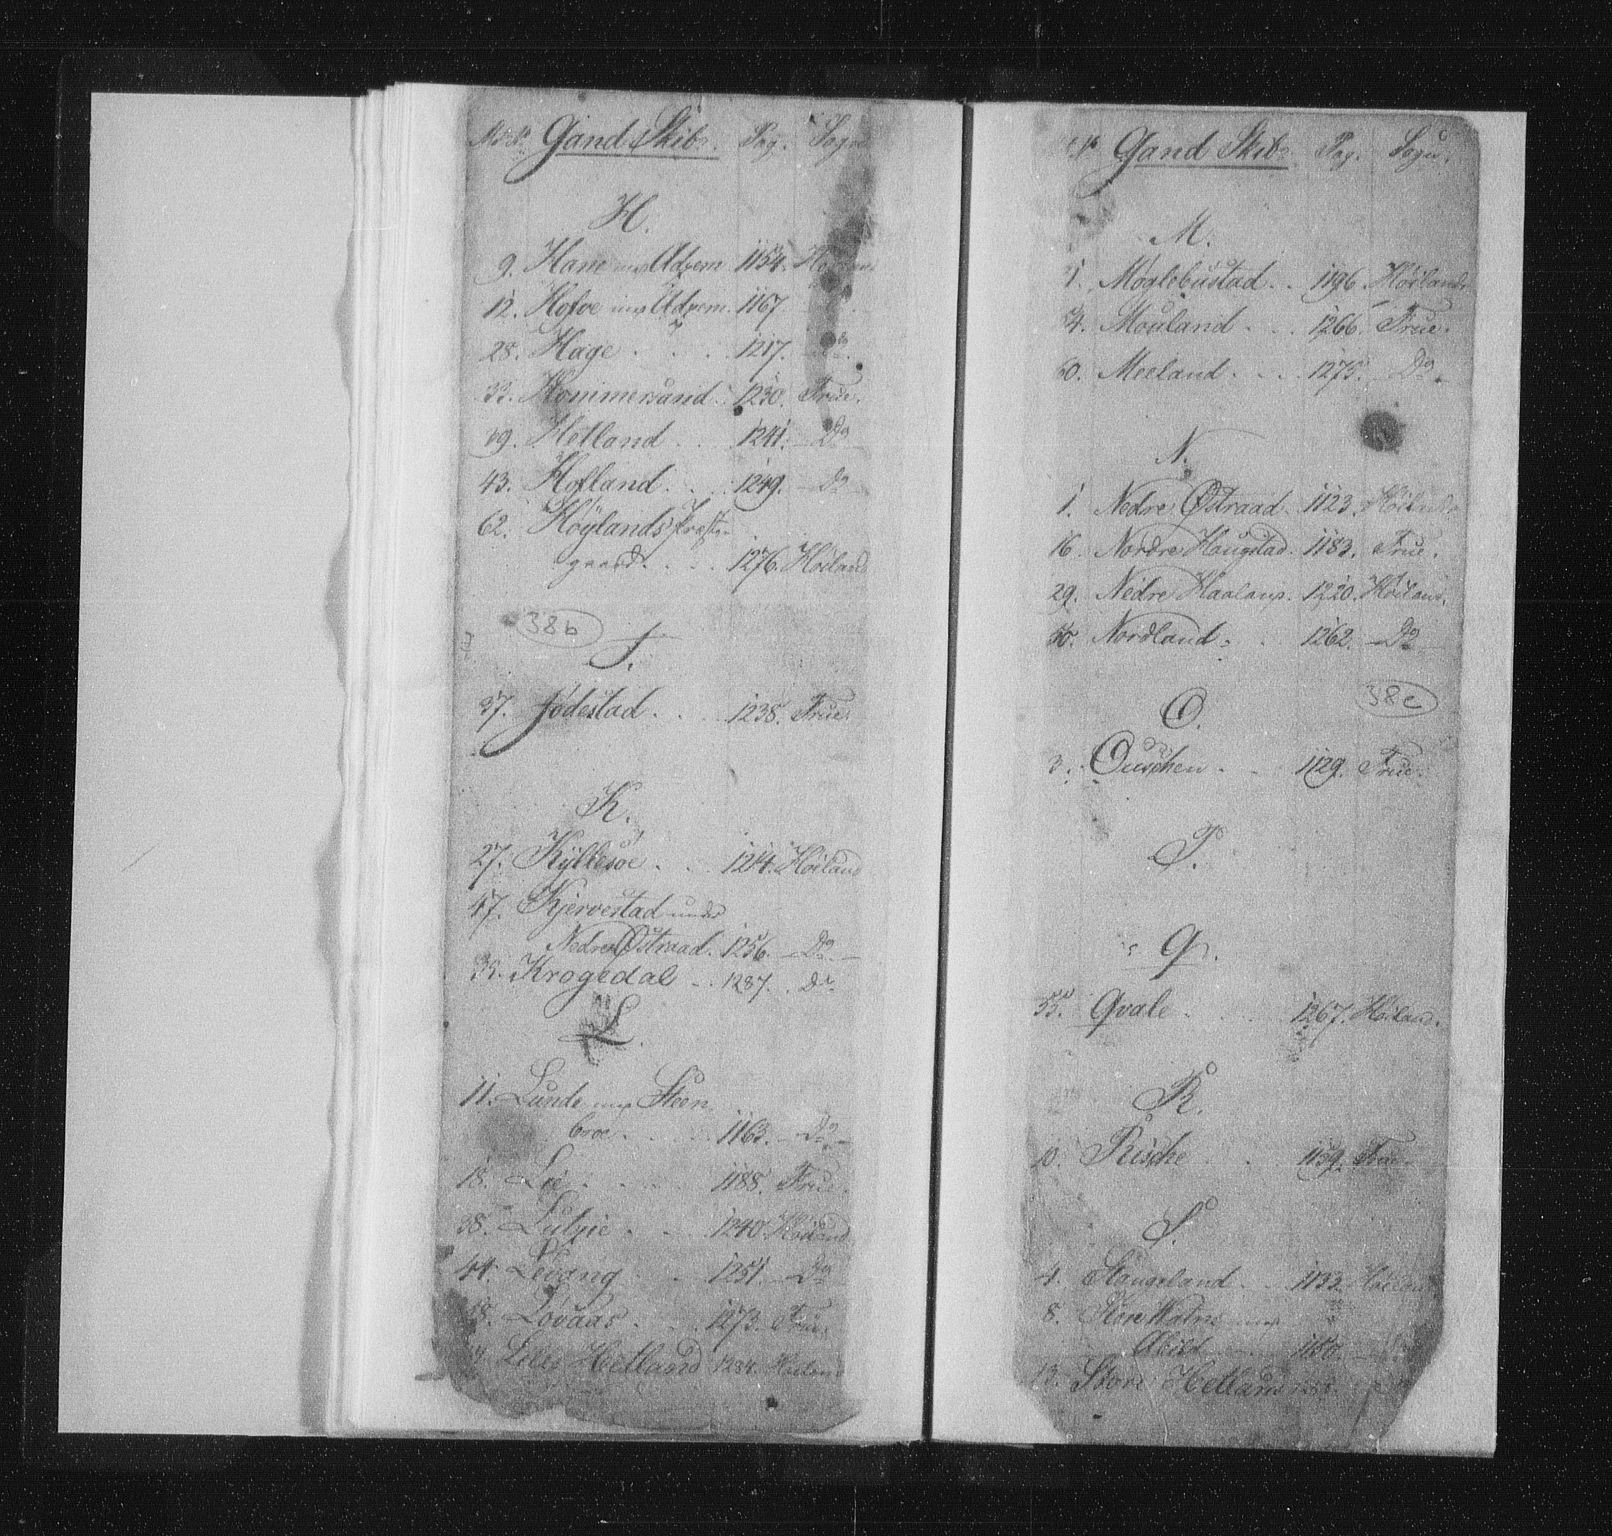 Gand Skibr. Pag. Sogn
H.
9. Hane Udvem 1154.
12. Hofve Udvem. 1167.
28. Hage . . . 1217. Do.
33. Hommersand . 1230. Frue.
39. Hetland . . 1241. Do
43. Hofland . . 1249. Do
62. Höÿlands Præste-
gaard . . . 1276. Höiland
38b
J.
37. Jödestad . . 1238. Frue.
K.
27. Kÿllesöe . . 1214. Höiland
47. Kjervestad under
Nedre Østraad. 1256. Do
Krogedal . . 1287. Do
L.
11. Lunde Steen
broe . . . 1163. Do
18. Lie . . . 1188. Frue.
38. Lutsie . . 1240. Höiland
44. Levang . . 1251. Do
Lovaas . . 1273. Frue.
Lille Hetland 1234. Höiland
Gand Skibr. Pag. Sogn.
M.
Möglebustad . . 1196. Höilands
Mouland . . . 1266. Frue.
60. Meeland . . . 1275. Do.
N.
1. Nedre Østraad 1123. Höilands
16. Nordre Haugstad. 1183. Frue.
29. Nedre Haaland. 1220. Höiland.
Nordland . . 1262. Do
38c
O.
3. Ouschen . . 1129. Frue.
P.
Q.
55. Qvale . . . 1267. Höiland.
R.
10. Rische . . 1159. Frue.
S.
4. Stangeland . . 1133. Höiland
8. Store
1150.
13. Store Hetland